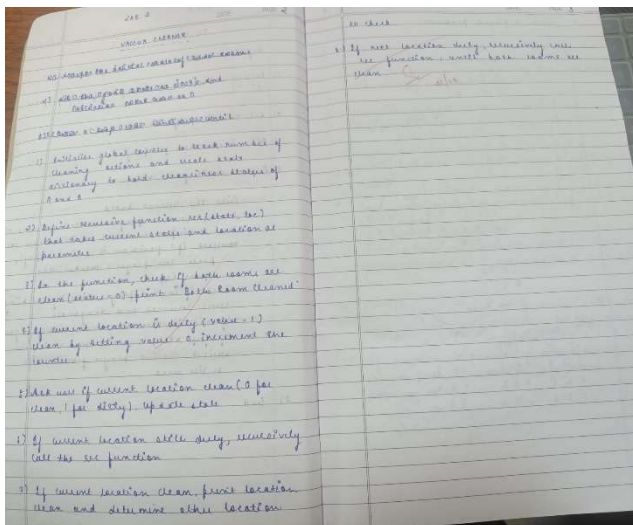 LAB 2
VACCUM CLEANER
1) Initialise global counter to track number of
cleaning actions and create state
dictionary to hold cleanliness status of
A and B
2) Define recursive function rec(state, loc)
that takes current state and location as
parameters
3) In the function, check if both rooms are
clean (status = 0), print "Both Room Cleaned"
4) If current location is dirty (value = 1)
clean by setting value = 0, increment the
counter
5) Ask user if current location clean (0 for
clean, 1 for dirty). Update state
6) If current location still dirty, recursively
call the rec function
7) If current location clean, print location
clean and determine other location
to check
8) If next location dirty, recursively call
rec function, until both rooms are
clean